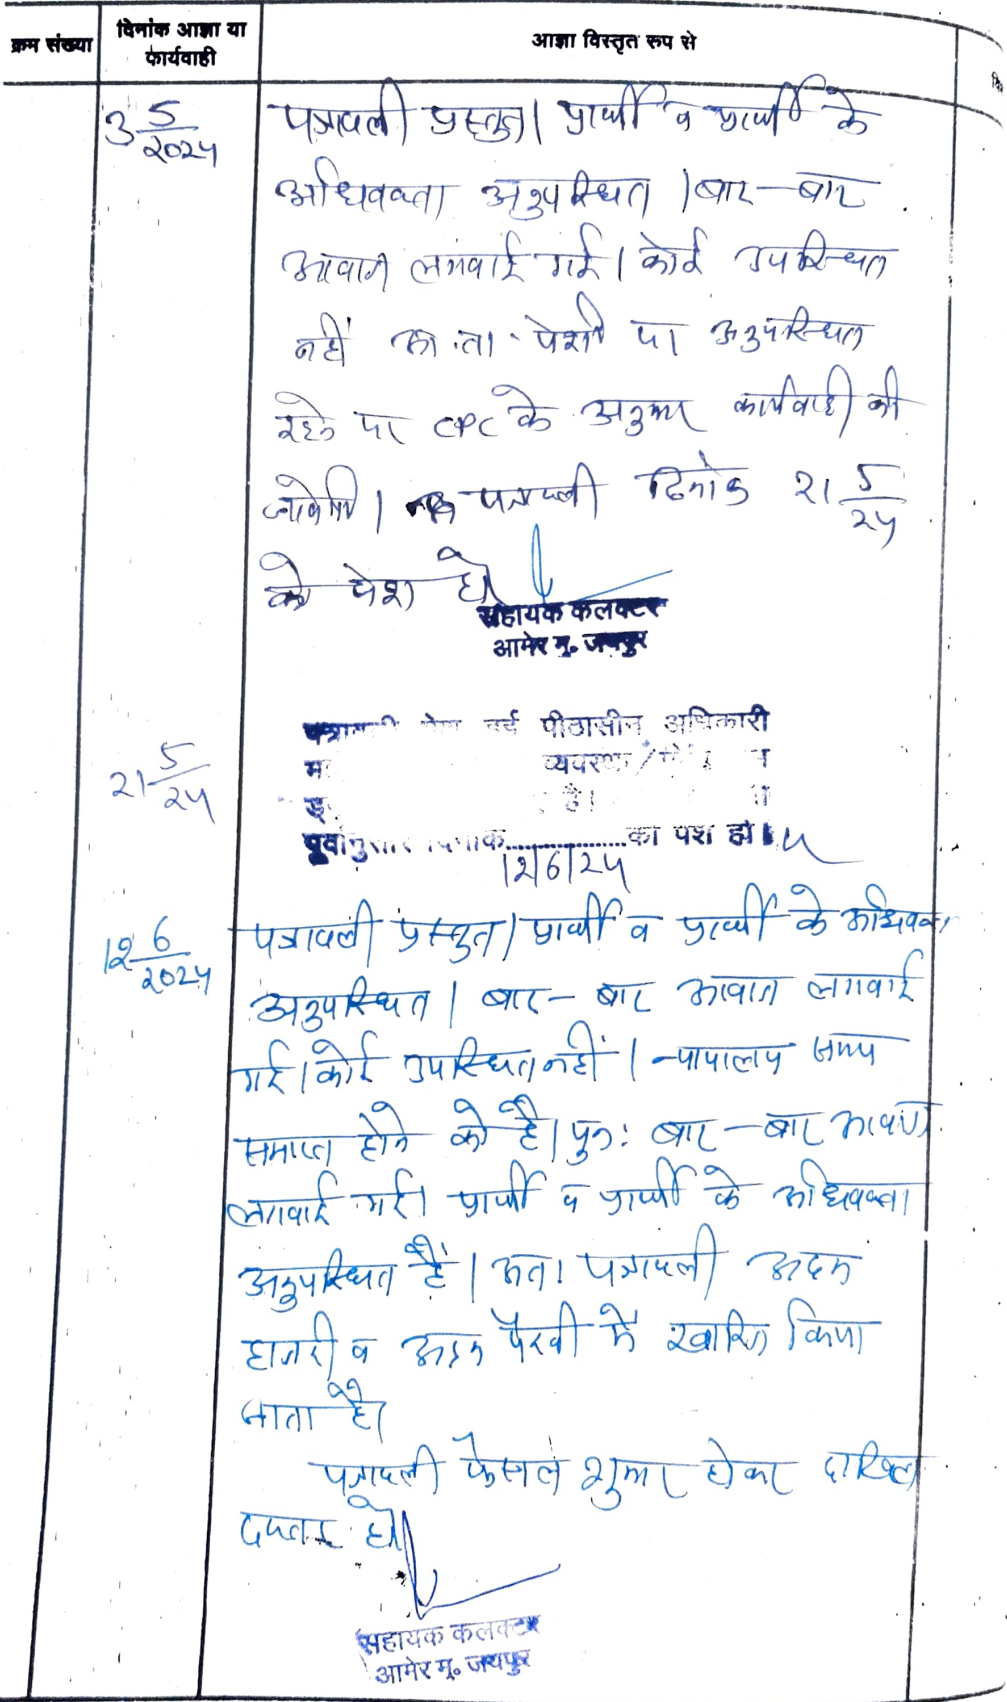 क्रम संख्या
दिनांक आज्ञा या
कार्यवाही
आज्ञा विस्तृत रूप से
3 5/2024
पत्रावली प्रस्तुत। प्रार्थी व प्रार्थी के
अधिवक्ता अनुपस्थित। बार-बार
आवाज लगवाई गई। कोई उपस्थित
नहीं पेशी पर अनुपस्थित
रहने पर CPC के अनुसार कार्यवाही की
जावेगी। पत्रावली दिनांक 21 5/24
को पेश हो।
सहायक कलक्टर
आमेर मु० जयपुर
21 5/24
पीठासीन अधिकारी
व्यवस्था /
है।
पूर्वानुसार दिनांक..................को पेश हो।
12/6/24
12 6/2024
पत्रावली प्रस्तुत। प्रार्थी व प्रार्थी के अधिवक्ता
अनुपस्थित। बार-बार आवाज लगवाई
गई। कोई उपस्थित नहीं। न्यायालय समय
समाप्त होने को है। पुन: बार-बार आवाज
लगवाई गई। प्रार्थी व प्रार्थी के अधिवक्ता
अनुपस्थित हैं। अत: पत्रावली अदम
हाजरी व अदम पैरवी में खारिज किया
जाता है।
पत्रावली फैसल शुमार होकर दाखिल
दफ्तर हो।
सहायक कलक्टर
आमेर मु० जयपुर